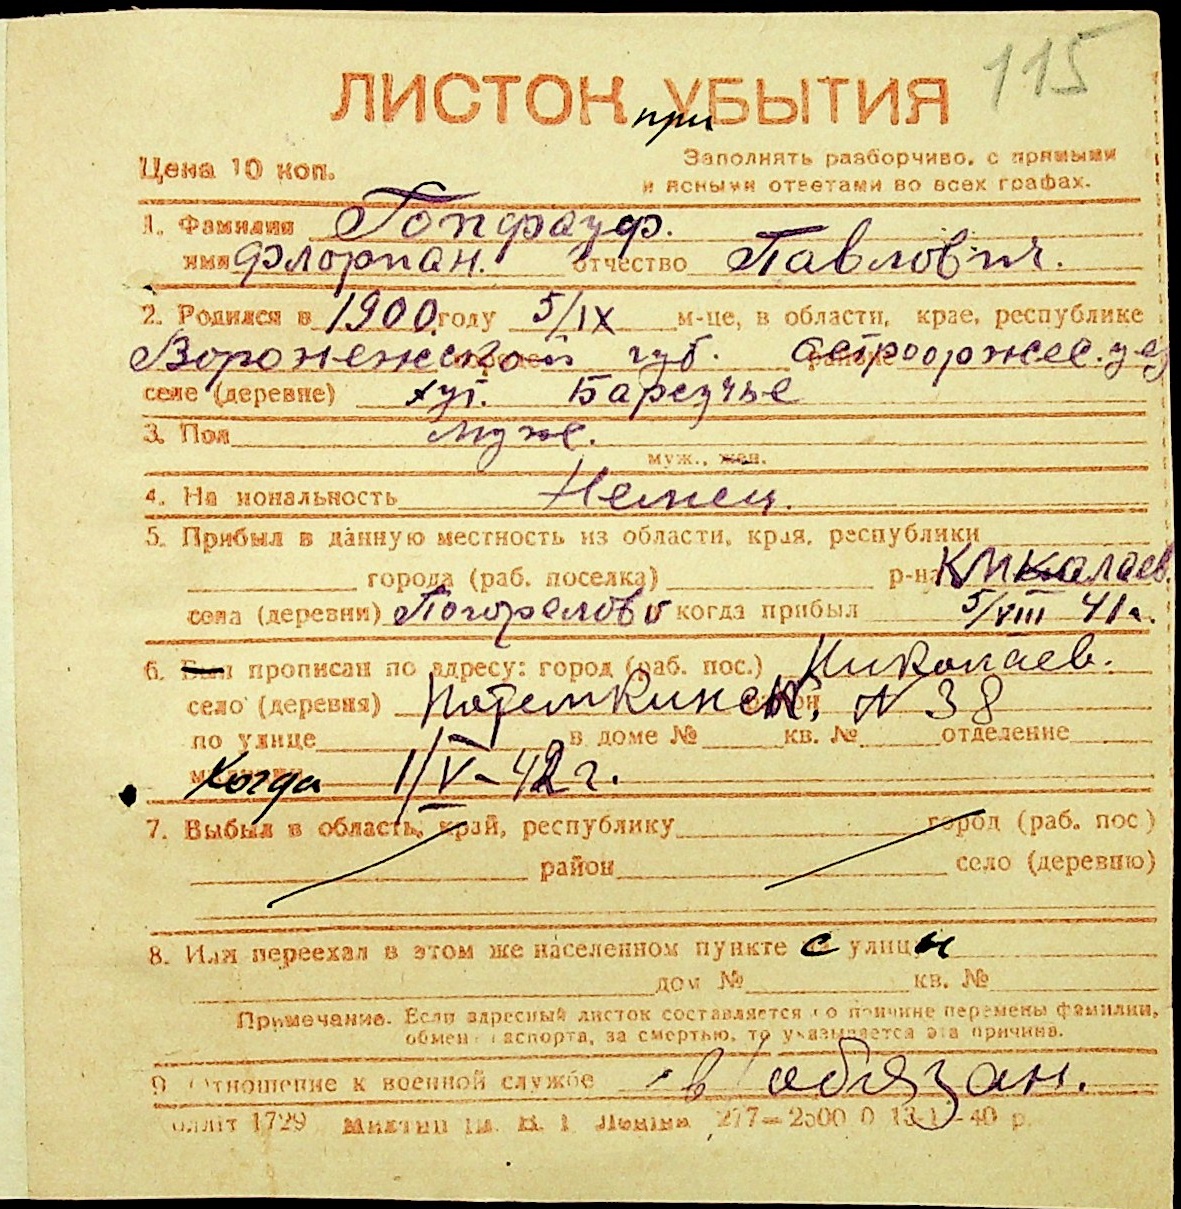 115
ЛИСТОН при УБЫТИЯ
Цена 10 коп.
Заполнять разборчиво, с прямыми
и ясными ответами во всех графах.
1. Фамилия Гопфауф.
имя Флориан. отчество Павлович.
2. Родился в 1900 году 5/IX м-це, в области, крае, республике
Воронежской губ. острогожск. уез
селе (деревне) хут. Баркучье
3. Пол муж.
муж., жен.
4. На иональность Немец.
5. Прибыл в данную местность из области, края, республики
города (раб. поселка) р-на
села (деревни) Погорелово и когда прибыл 5/VIII 41 г.
6. Был прописан по адресу: город (раб. пос.) Николаев.
село (деревня) Потемкинск. N 38
по улице в доме № кв. № отделение
Когда 1/V-42 г.
7. Выбыл в область, край, республику город (раб. пос)
район село (деревню)
8. Или переехал в этом же населенном пункте с улицы
дом № кв. №
Примечание. Если адресный листок составляется по причине перемены фамилии,
обмен паспорта, за смертью, то указывается эта причина.
9. Отношение к военной службе в/обязан.
олліт 1729 Миктип ім. В. І. Леніна 277—2500 0 13-I-40 р.